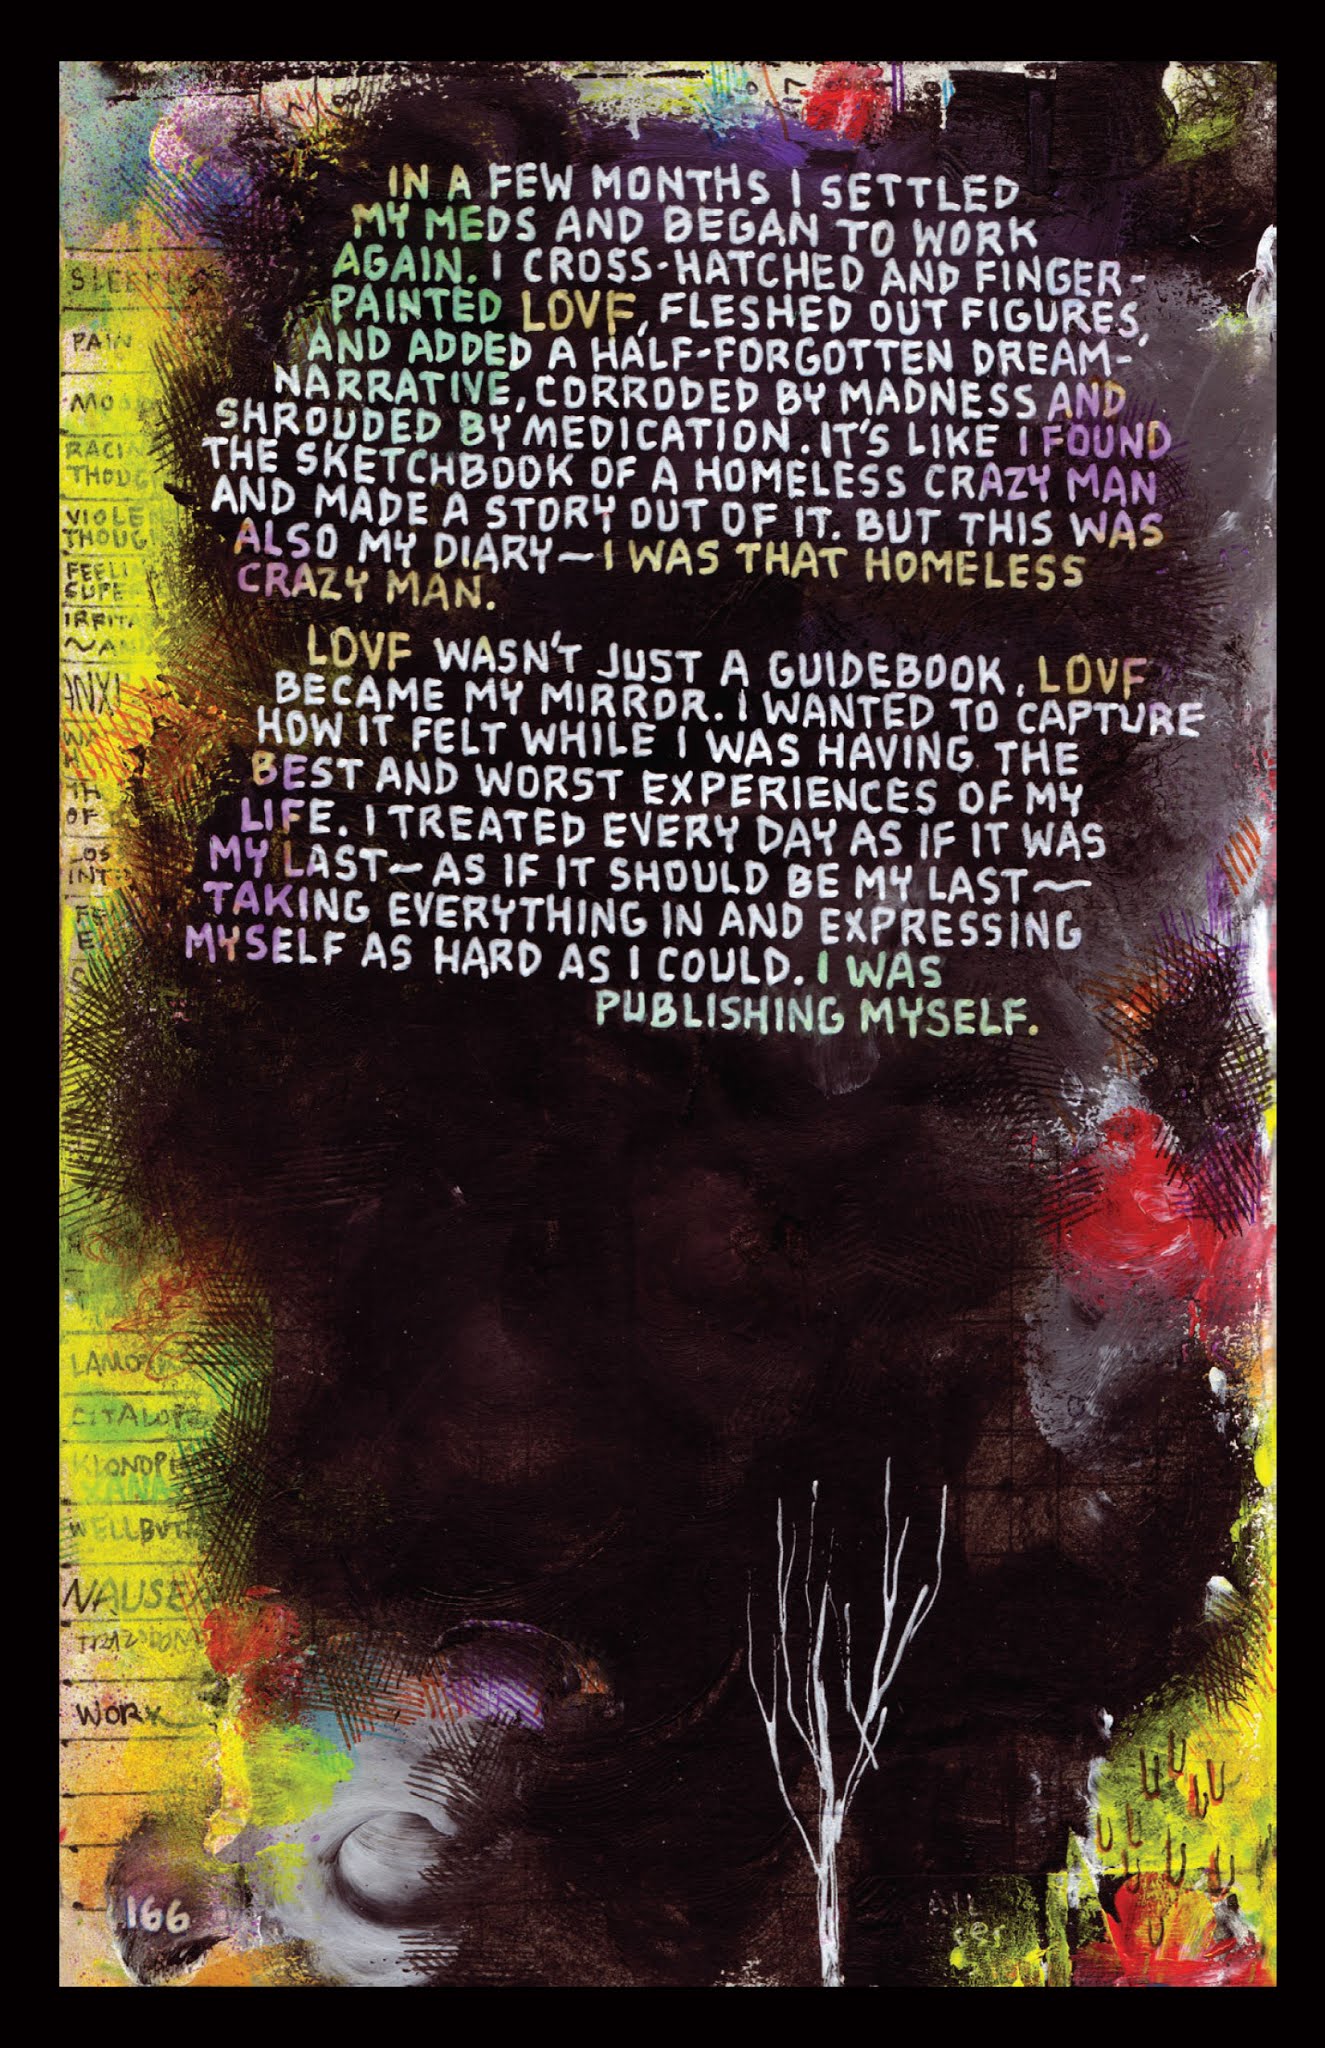 IN A FEW MONTHS I SETTLED
MY MEDS AND BEGAN TO WORK
AGAIN. I CROSS-HATCHED AND FINGER-
PAINTED LOVF, FLESHED OUT FIGURES,
AND ADDED A HALF-FORGOTTEN DREAM-
NARRATIVE, CORRODED BY MADNESS AND
SHROUDED BY MEDICATION. IT'S LIKE I FOUND
THE SKETCHBOOK OF A HOMELESS CRAZY MAN
AND MADE A STORY OUT OF IT. BUT THIS WAS
ALSO MY DIARY—I WAS THAT HOMELESS
CRAZY MAN.
LOVF WASN'T JUST A GUIDEBOOK, LOVF
BECAME MY MIRROR. I WANTED TO CAPTURE
HOW IT FELT WHILE I WAS HAVING THE
BEST AND WORST EXPERIENCES OF MY
LIFE. I TREATED EVERY DAY AS IF IT WAS
MY LAST—AS IF IT SHOULD BE MY LAST—
TAKING EVERYTHING IN AND EXPRESSING
MYSELF AS HARD AS I COULD. I WAS
PUBLISHING MYSELF.
PAIN
RACIN
THOUG
VIOLE
THOUG
FEELI
SUPE
IRRITA
ANXI
OF
LOS
INT
LAMO
CITALOP
KLONOP
XANA
WELLBUT
NAUSEA
TRAZODON
WORK
166